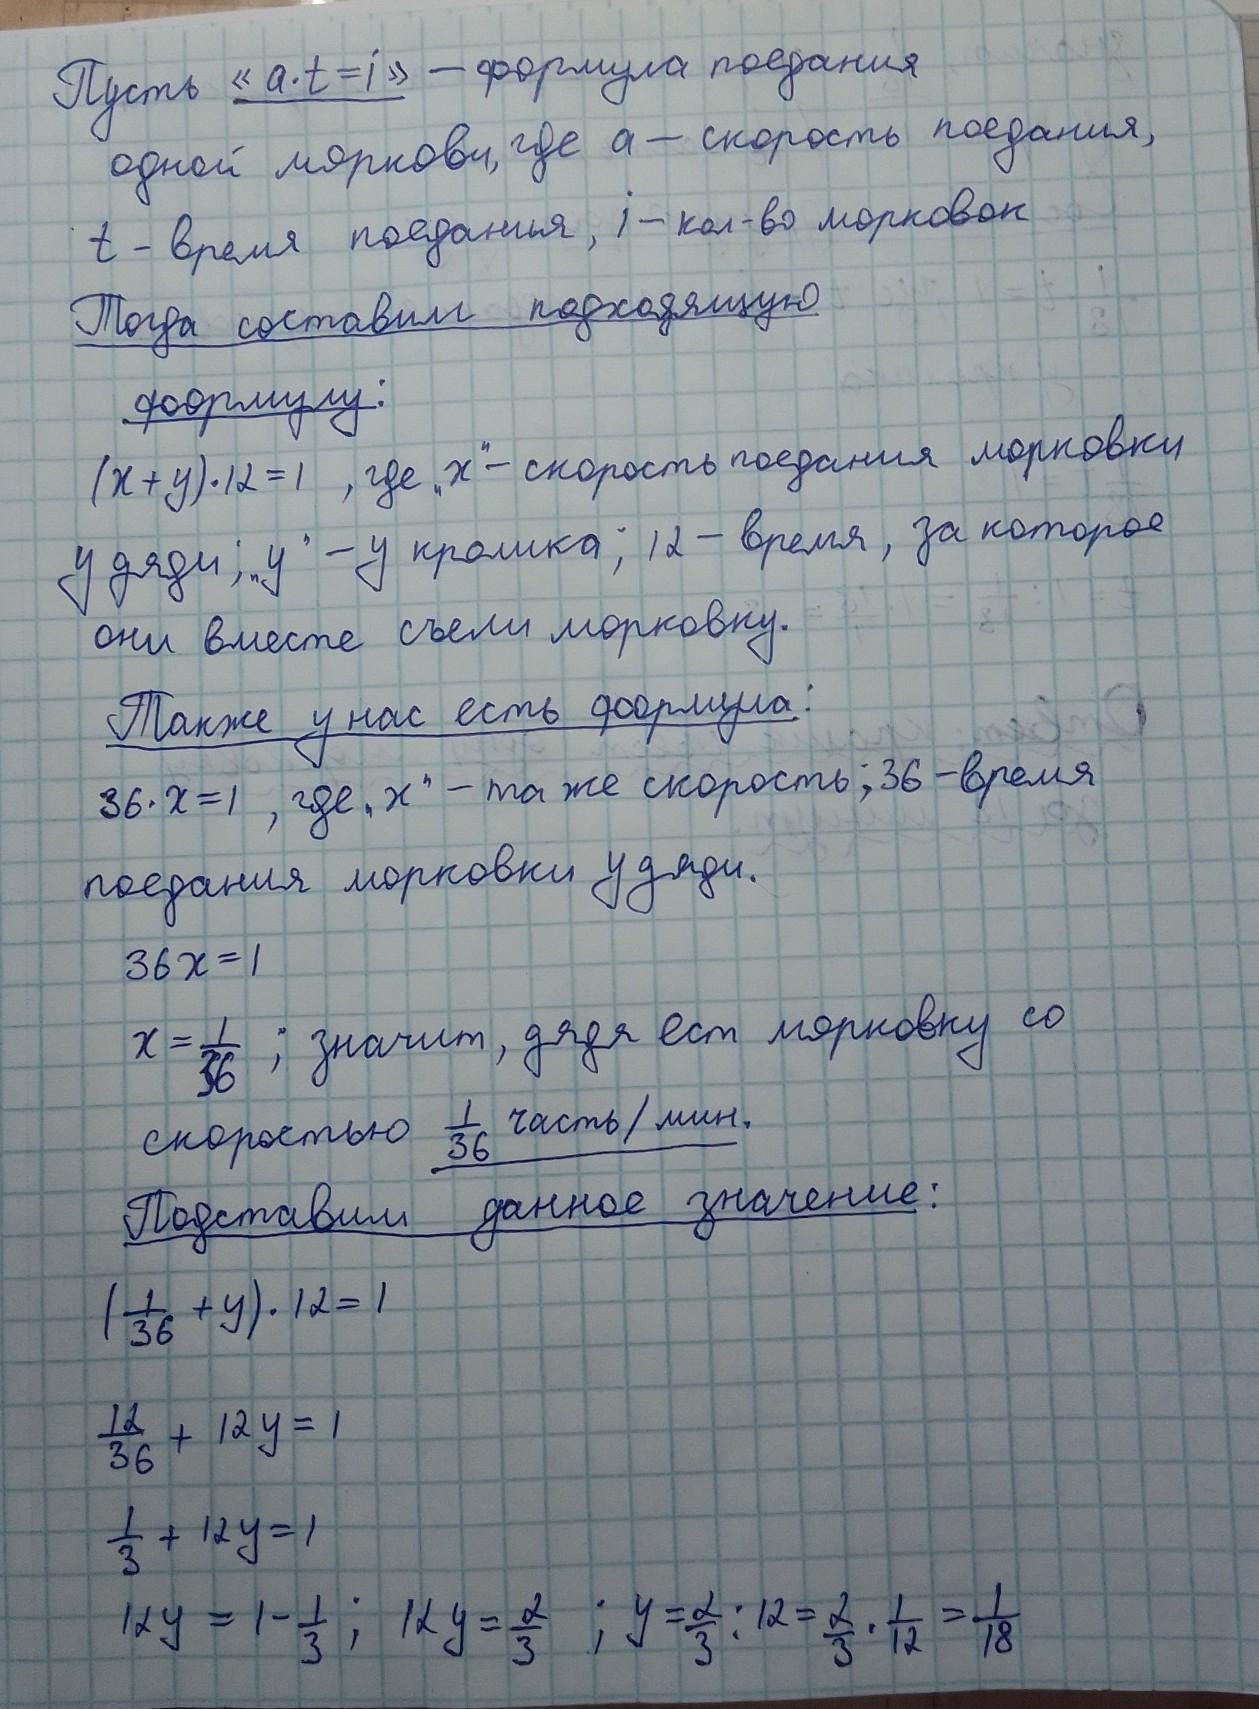 Пусть «a·t=i» – формула поедания
одной моркови, где a – скорость поедания,
t - время поедания, i – кол-во морковок
Тогда составим подходящую
формулу:
(x+y)·12=1, где „x" – скорость поедания морковки
у дяди; „y" – у кролика; 12 – время, за которое
они вместе съели морковку.
Также у нас есть формула:
36·x=1, где „x" – та же скорость; 36 – время
поедания морковки у дяди.
36x=1
x=1/36; значит, дядя ест морковку со
скоростью 1/36 часть/мин.
Подставим данное значение:
(1/36+y)·12=1
12/36 + 12y=1
1/3 + 12y=1
12y = 1-1/3; 12y=2/3; y=2/3:12=2/3·1/12=1/18